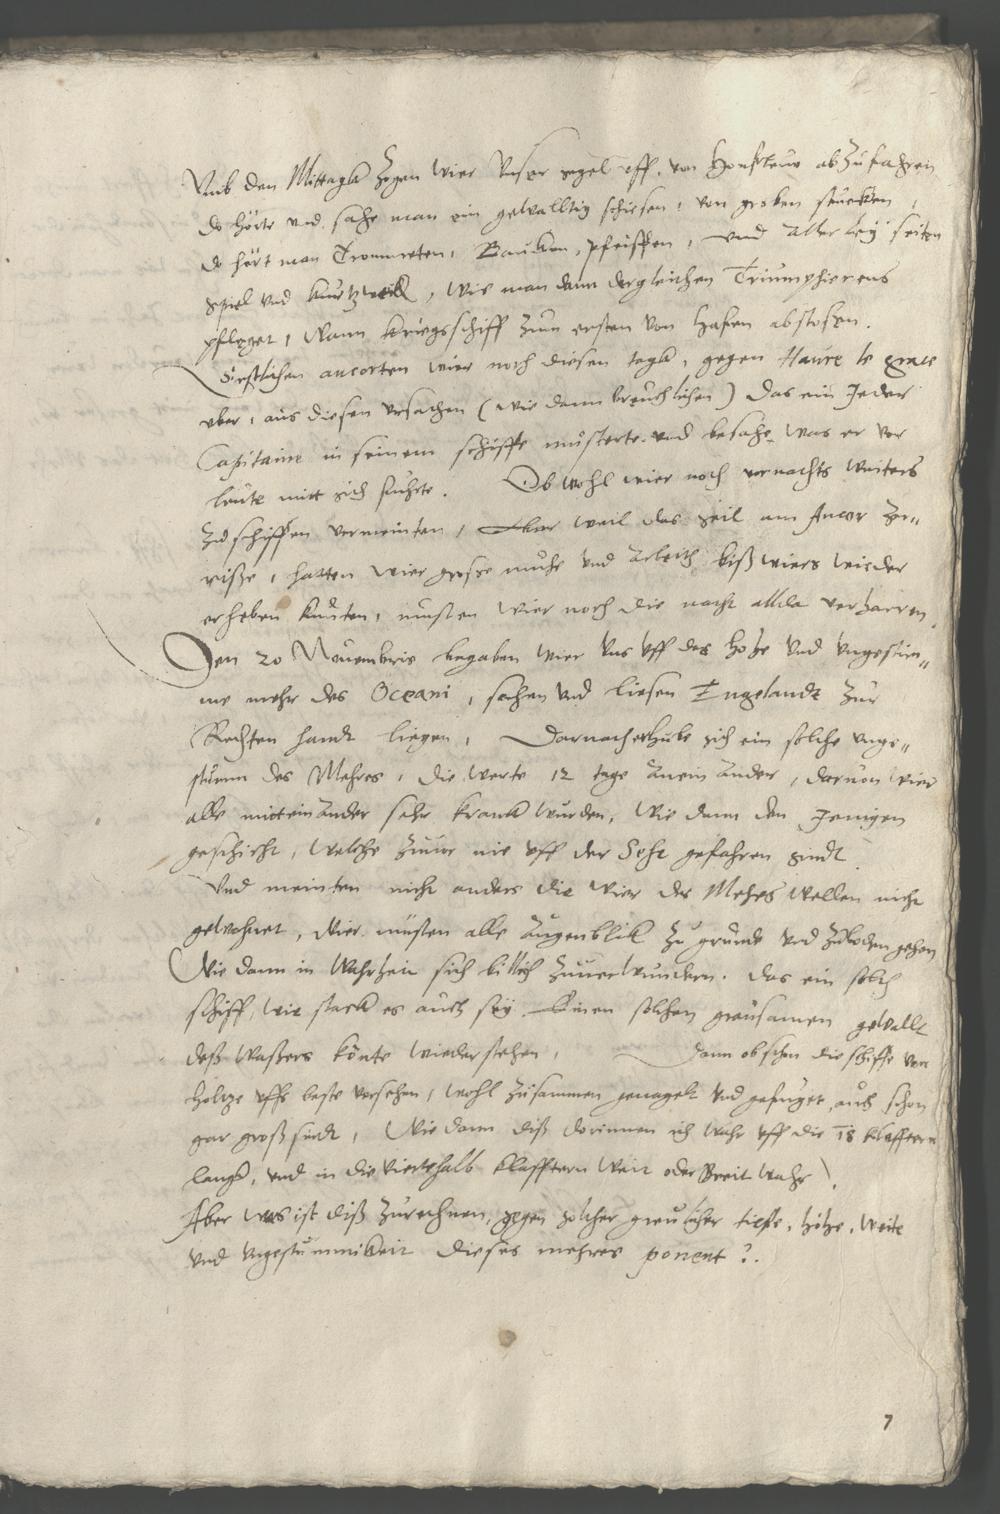 Vmb den Mittagk zogen wier vnser segel vff, von Honfleur abzufahren
do hörte vnd sahe man ein gewalltig schiesen, von groben stuecken,
do hört man Trommeten, Baucken, pfeiffen, vnd aller ley seiten
spiel vnd kurtzweil, wie man dann dergleichen Triumphierens
pfleget, Wann kriegsschiff zum ersten von hafen abstosen.
Erstlichen ancorten wier noch diesen tagk, gegen Haure le grace
vber, aus diesen vrsachen (wie dann breuchlichen) Das ein Jeder
Capitaine in seinem schiffe musterte vnd besahe was er vor
leute mitt sich fuhrte. Ob wohl wier noch vor nachts weiters
zu schiffen vermeinten, weil das seil am Ancor zer„
riße, hatten wier grosse muhe vnd arbeith biß wiers wieder
erheben kunten, musten wier noch die nacht allda verharren.
Den 20 Nouembris begaben wier vns vff das hohe vnd vngestüm„
me mehr des Oceani, sachen vnd liesen Engelandt zur
Rechten handt liegen, Darnach erhube sich ein solche vnge„
stumm des Mehres, die werte 12 tage an ein ander, daruon wier
alle mitt einander sehr kranck wurden, wie dann den Jenigen
geschicht, welche zuuor nie vff der Sehe gefahren sindt
Vnd meinten nicht anders die wier des Mehres wellen nicht
gewohnet, wier müsten alle Augenblick zu grunde vnd zu boden gehen
Wie dann in wahrheit sich billich zuuerwundern. das ein solch
schiff, wie starck es auch sey. Einen solchen greusamen gewallt
deß waßers könte wiederstehen, Dann ob schon die schiffe von
holtze vffs beste versehen, wohl zusammen genagelt vnd gefuget, auch schon
gar groß sindt, Wie dann diß dorinnen ich wahr vff die 18 klafftern
langk, vnd in die vierthalb klafftern weit oder Breit wahr).
Aber was ist diß zurechnen, gegen solcher greulicher tieffe, höhe, weite
vnd vngestummikeit dieses mehres ponent?.
7